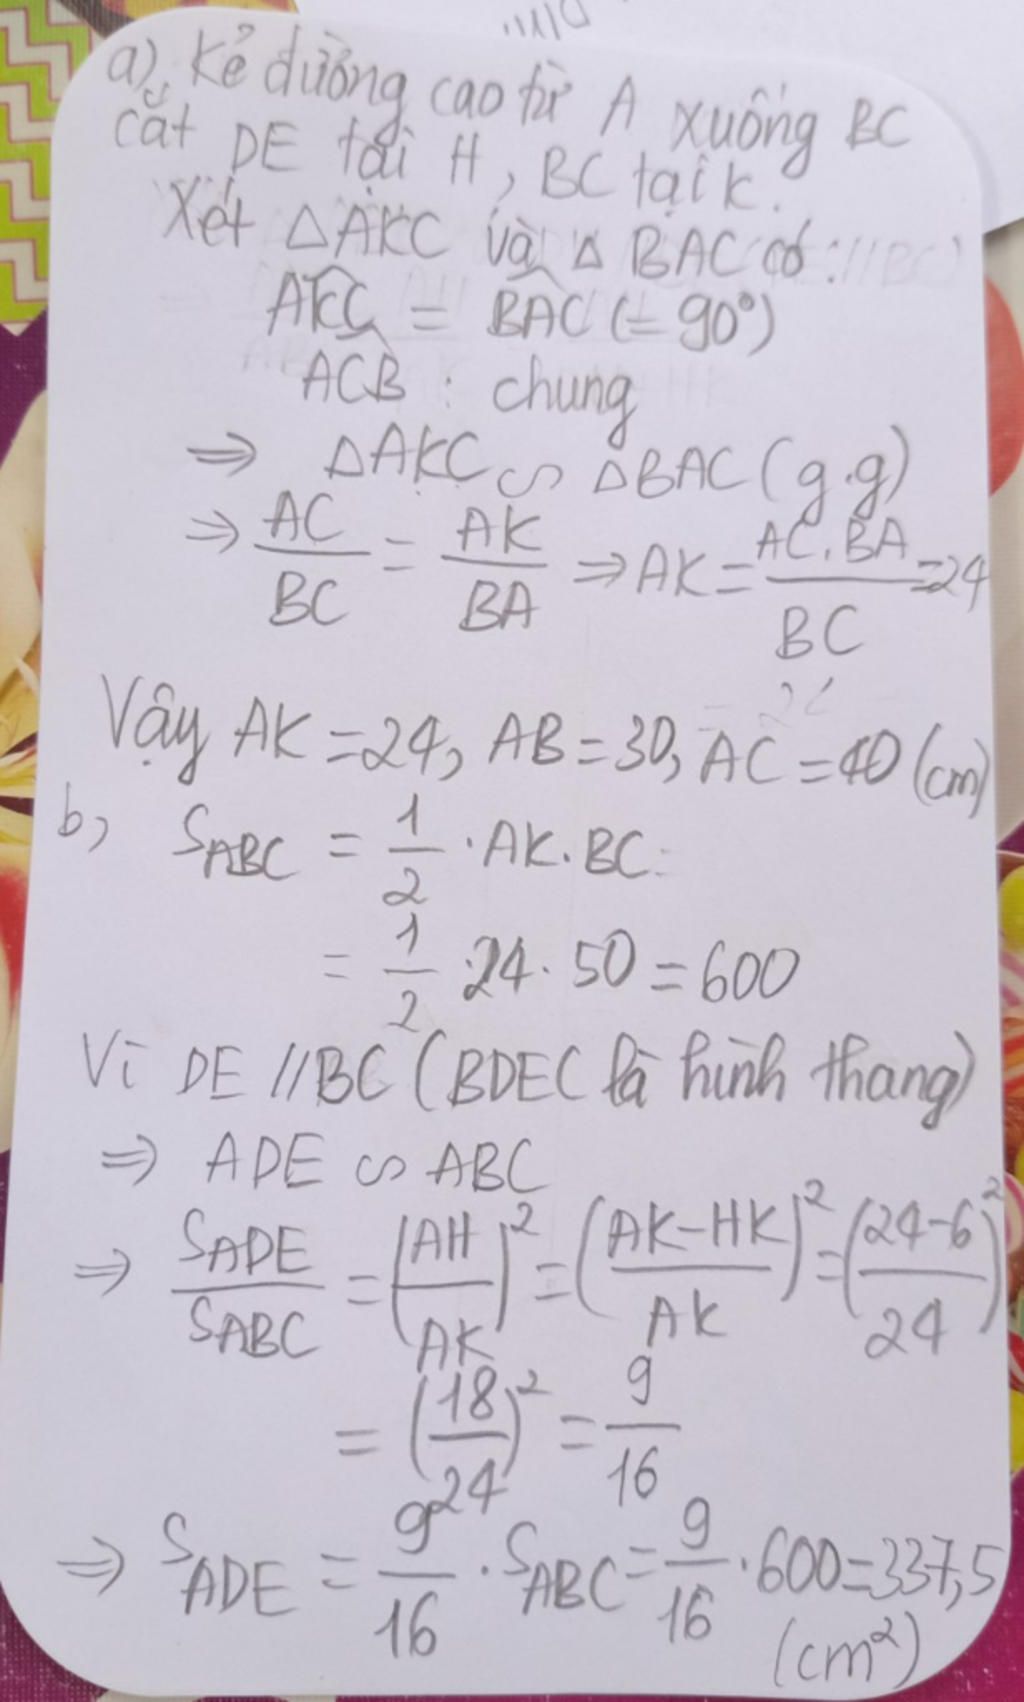 a) Kẻ đường cao từ A xuống BC
cắt DE tại H, BC tại K.
Xét △AKC và △ BAC có:
AKC = BAC (= 90°)
ACB : chung
⇒ △AKC ∽ △BAC (g.g)
⇒ AC/BC = AK/BA ⇒ AK = AC.BA/BC = 24
Vậy AK = 24, AB = 30, AC = 40 (cm)
b) S_ABC = 1/2 . AK. BC
= 1/2 . 24 . 50 = 600
Vì DE // BC (BDEC là hình thang)
⇒ ADE ∽ ABC
⇒ S_ADE/S_ABC = (AH/AK)² = (AK-HK/AK)² = (24-6/24)²
= (18/24)² = 9/16
⇒ S_ADE = 9/16 . S_ABC = 9/16 . 600 = 337,5
(cm²)